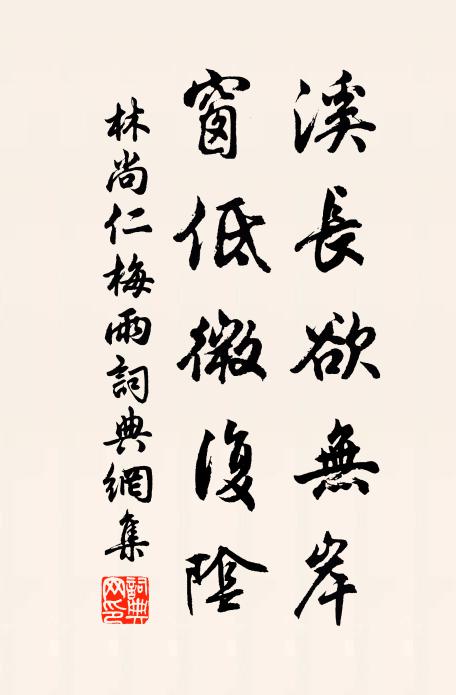 溪長欲無岸
窗低微復陰
林尚仁梅雨詞典網集
詞典網印